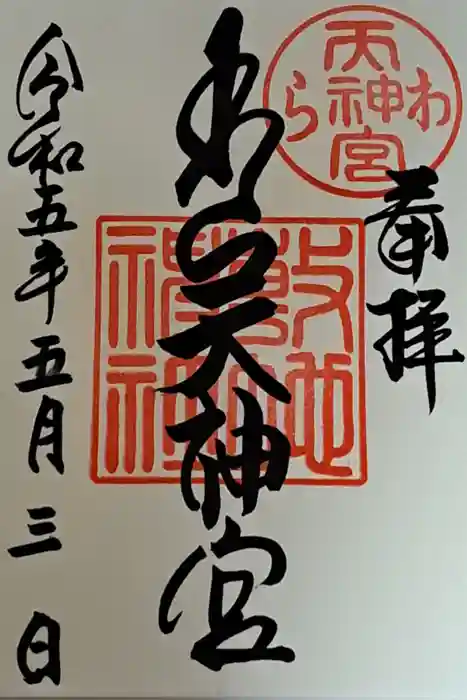 奉拝
わら
天神宮
わら天神宮
敷地
神社
令和五年五月三日